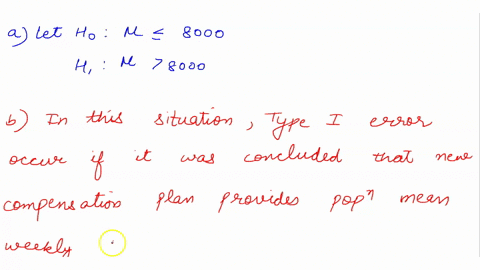 a) Let H₀ : M ≤ 8000
H₁ : M > 8000
b) In this situation, Type I error
occur if it was concluded that new
compensation plan provides popⁿ mean
weekly